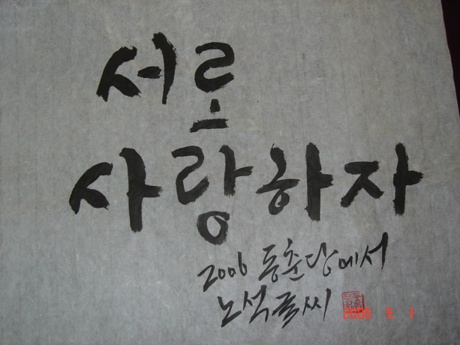 서로
사랑하자
2006 동춘당에서
노석글씨